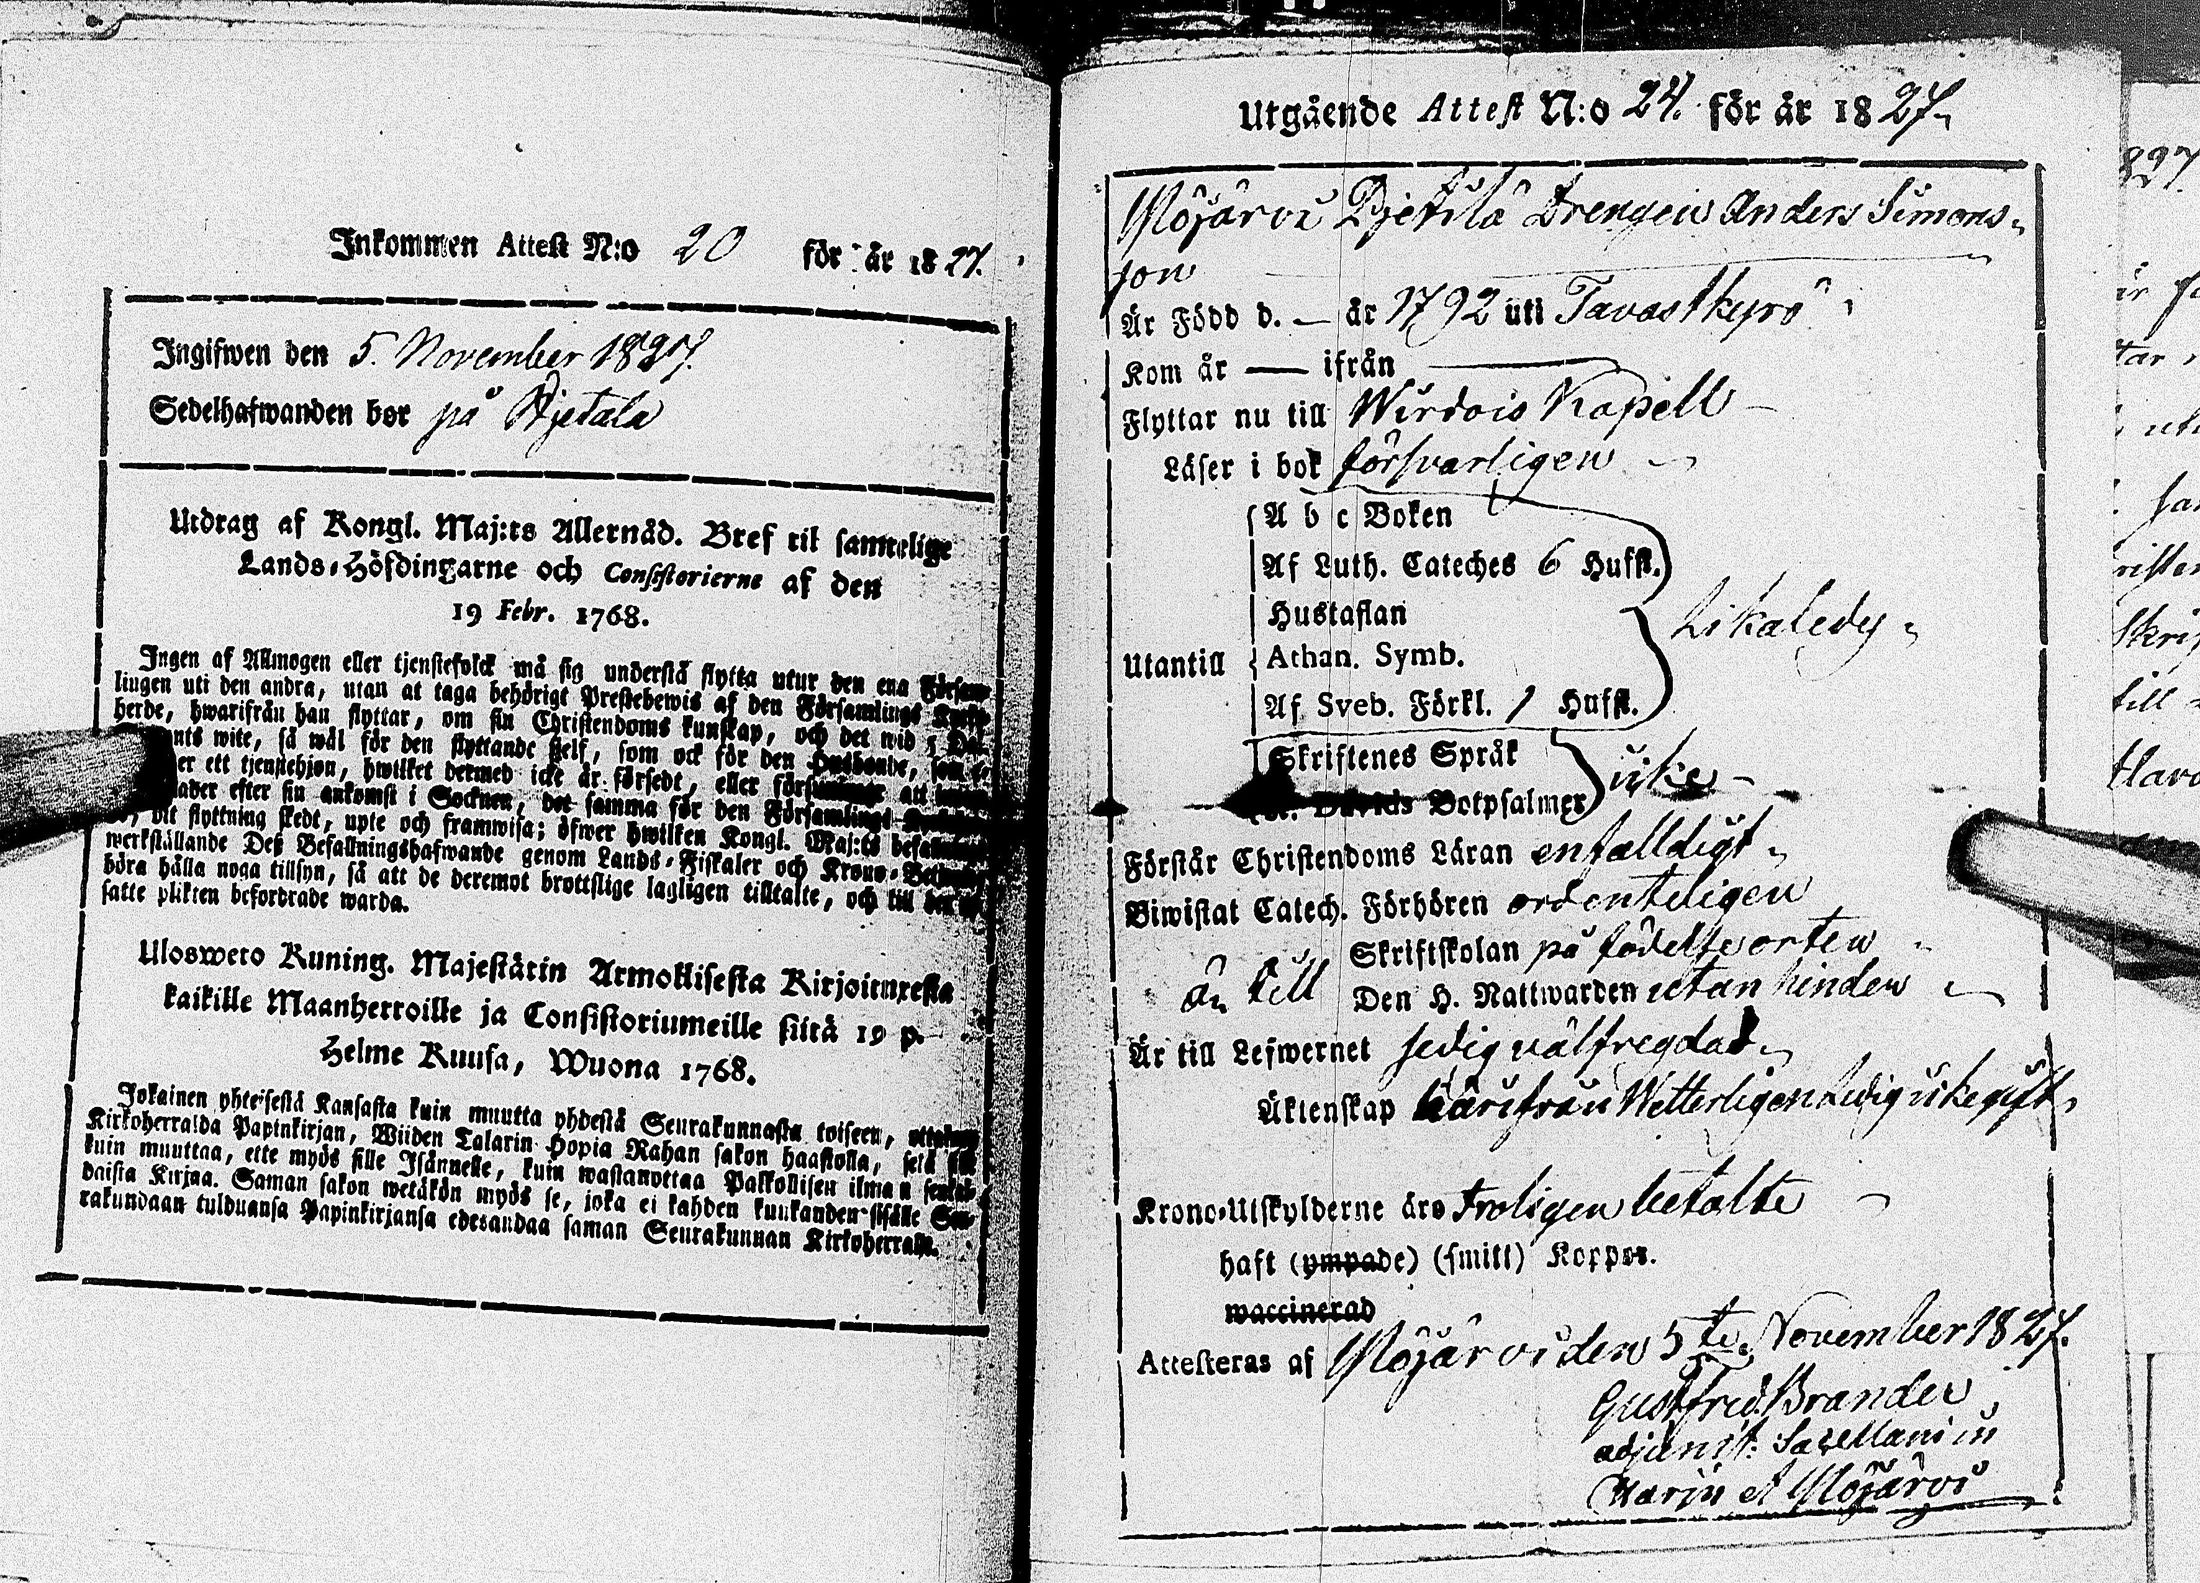 Inkommen Attest N:o 20 för år 1827.
Ingifwen den 5. November 1827.
Sedelhafwanden bor på Djetala
Utdrag af Kongl. Maj:ts Allernåd. Bref til samtelige
Lands-Höfdingarne och Consistorierne af den
19 Febr. 1768.
Ingen af Allmogen eller tjenstefolck må sig understå flytta utur den ena Försam-
lingen uti den andra, utan at taga behörigt Prestebewis af den Församlings Kyrko-
herde, hwarifrån han flyttar, om sin Christendoms kunskap, och det wid 5 Dal.
wite, så wäl för den flyttande sjelf, som ock för den
ett tjenstehjon, hwilket dermed icke är försedt, eller att
efter sin ankomst i Socknen, det samma för den Församlings
dit flyttning skedt, upte och framwisa; öfwer hwilken Kongl. Maj:ts
werkställande Deß Befallningshafwande genom Lands-Fiskaler och Krono-
böra hålla noga tillsyn, så att de deremot brottslige lagligen tilltalte, och till den
satte plikten befordrade warda.
Uloswero Kuning. Majestärin Armollisesta Kirjoituxesta
kaikille Maanherroille ja Consistoriumeille siitä 19 p.
Helme Kuusa, Wuona 1768.
Jokainen yhteisestä Kansasta kuin muutta yhdestä Seurakunnasta toiseen,
Kirkoherralda Papinkirjan, Wiiden Talarin Hopia Rahan sakon haastolla, sekä
kuin muuttaa, ette myös sille Isännelle, kuin wastanottaa Palkollisen ilman
daista Kirjaa. Saman sakon wetäkön myös se, joka ei kahden kuukanden sisälle Seu-
rakundaan tulduansa Papinkirjansa edesandaa saman Seurakunnan Kirkoherralle.
Utgående Attest N:o 24. för år 1827
Ylöjärvi Djetilä Drengen Anders Simons-
son
Är Född d. — år 1792 uti Tavastkyrö
Kom år — ifrån —
Flyttar nu till Wirdois Kapell
Läser i bok försvarligen
A b c Boken
Af Luth. Cateches 6 Hufst.
Hustaflan
Likaledes
Utantill Athan. Symb.
Af Sveb. Förkl. 1 Hufst.
Skriftenes Språk
icke
Davids Botpsalmer
Förstår Christendoms Läran enfalldigt
Biwistat Catech. Förhören ordenteligen
Skriftskolan på födelseorten
Den H. Nattwarden utan hinder
Är till Lefwernet sedig välfregdad
Äktenskap härifrån Wetterligen Ledig icke gift
Krono-Utskylderne äro troligen betalte
haft (ympade) (smitt) Koppor.
waccinerad
Attesteras af Ylöjärvi den 5te November 1827.
Gust. Fred. Brander
adjunct. Sacellani in
Karju et Ylöjärvi